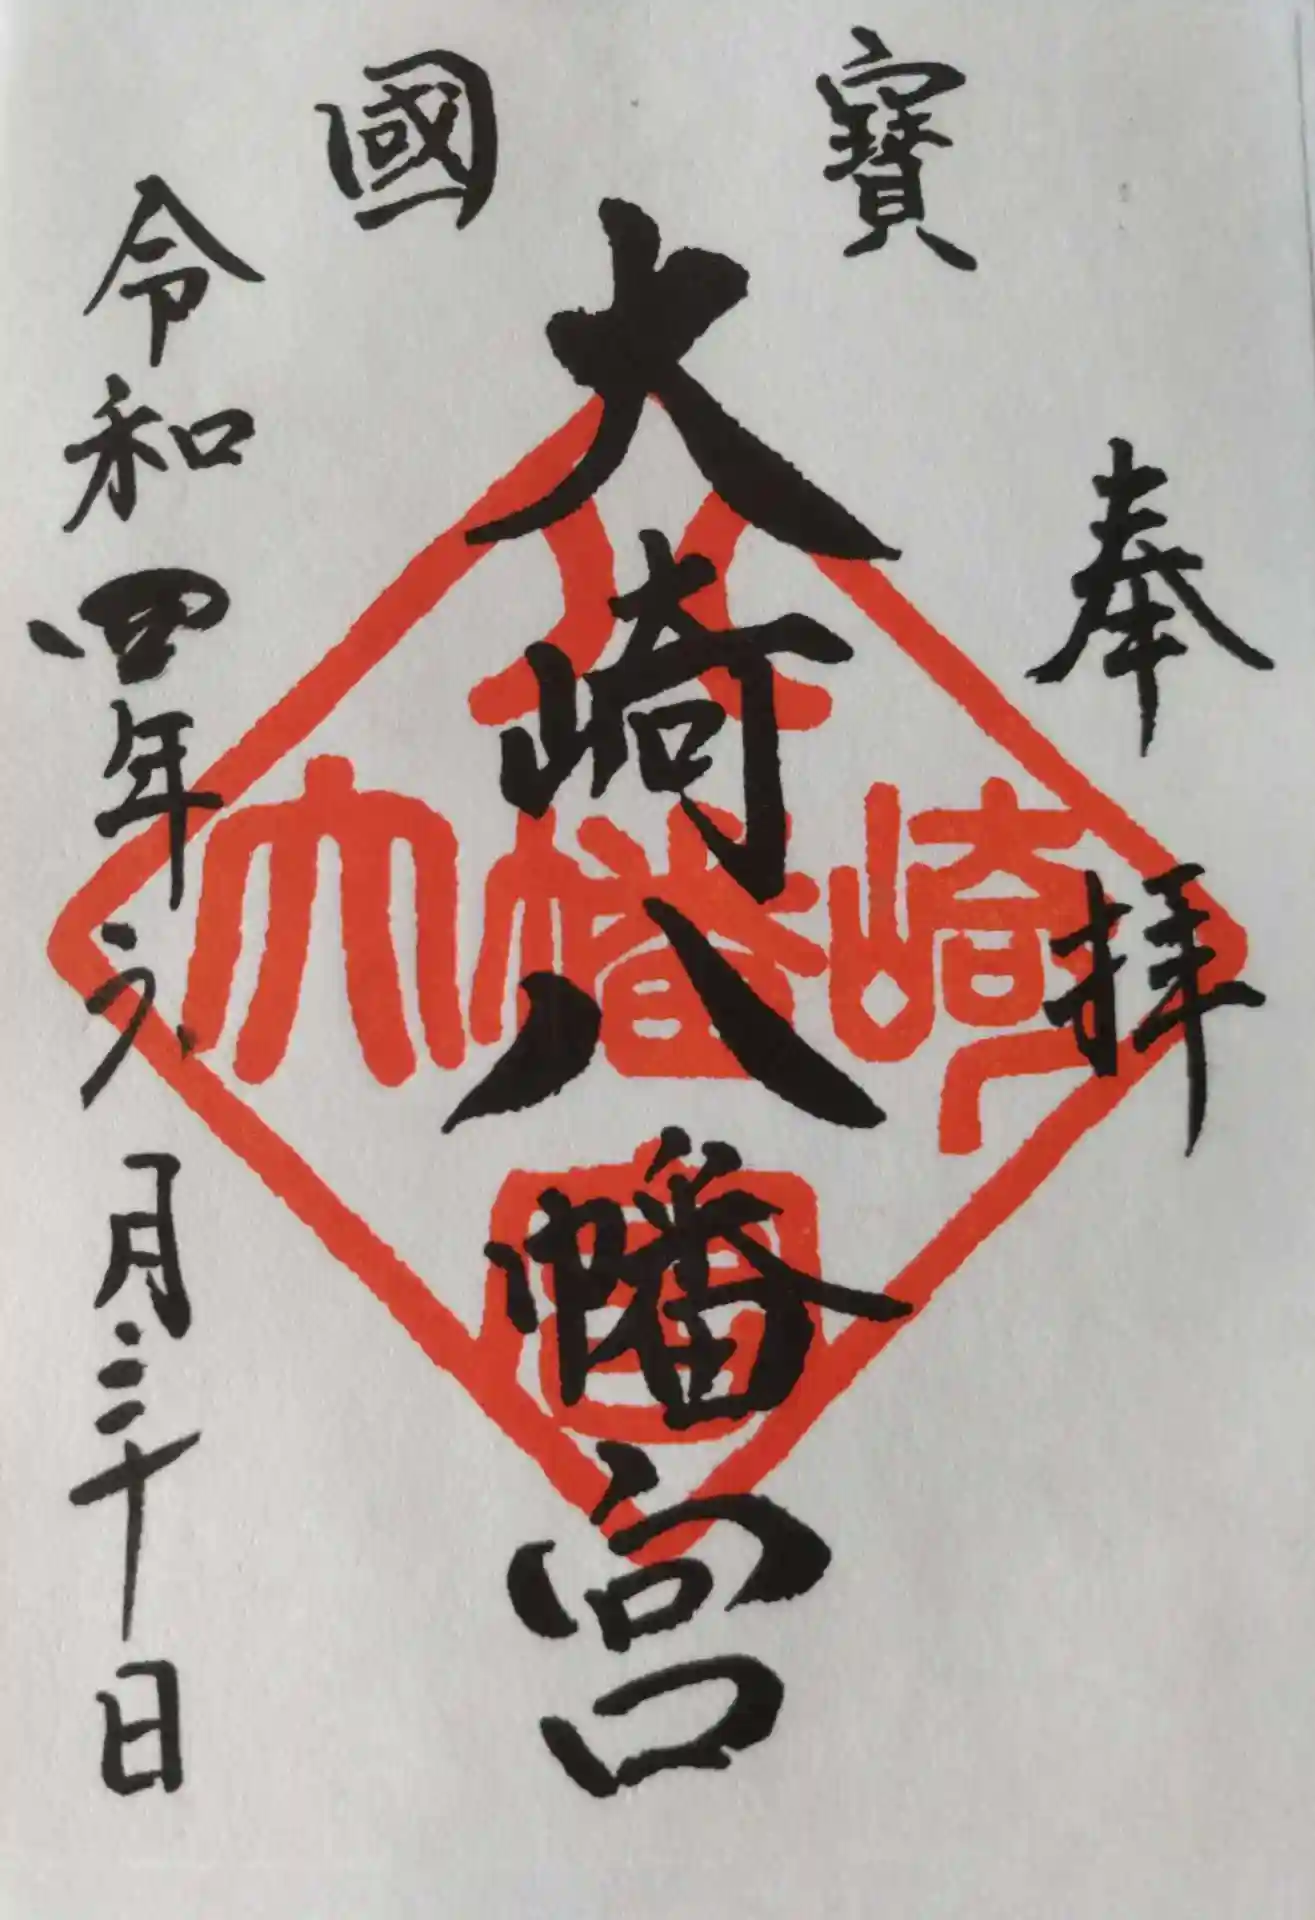 奉拝
國寶
大崎八幡宮
令和四年六月三十日
八
大幡崎
宮